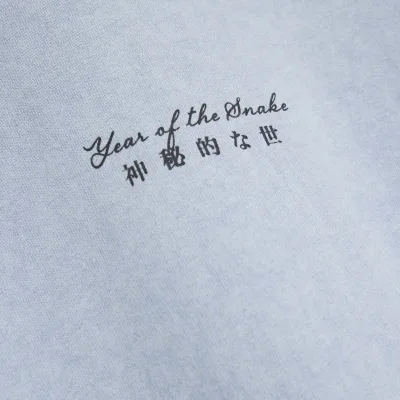 Year of the Snake
神秘的な世